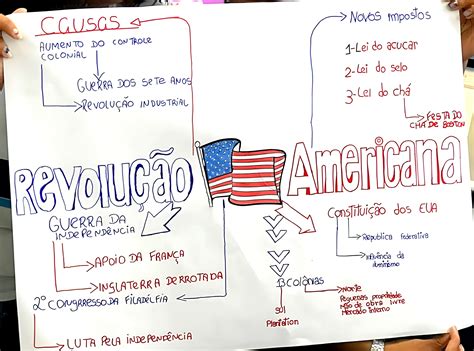 CAUSAS
AUMENTO DO CONTROLE
COLONIAL
GUERRA DOS SETE ANOS
REVOLUÇÃO INDUSTRIAL
NOVOS IMPOSTOS
1-LEI DO AÇUCAR
2-LEI DO SELO
3-LEI DO CHÁ
FESTA DO
CHÁ DE BOSTON
REVOLUÇÃO
AMERICANA
GUERRA DA
INDEPENDÊNCIA
APOIO DA FRANÇA
INGLATERRA DERROTADA
2º CONGRRESSO DA FILADÉLFIA
LUTA PELA INDEPENDÊNCIA
CONSTITUIÇÃO DOS EUA
REPUBLICA FEDERATIVA
INFLUÊNCIA DA
13 COLÔNIAS
SUL
Plantation
NORTE
Pequenas propriedade
Mão de obra livre
Mercado interno